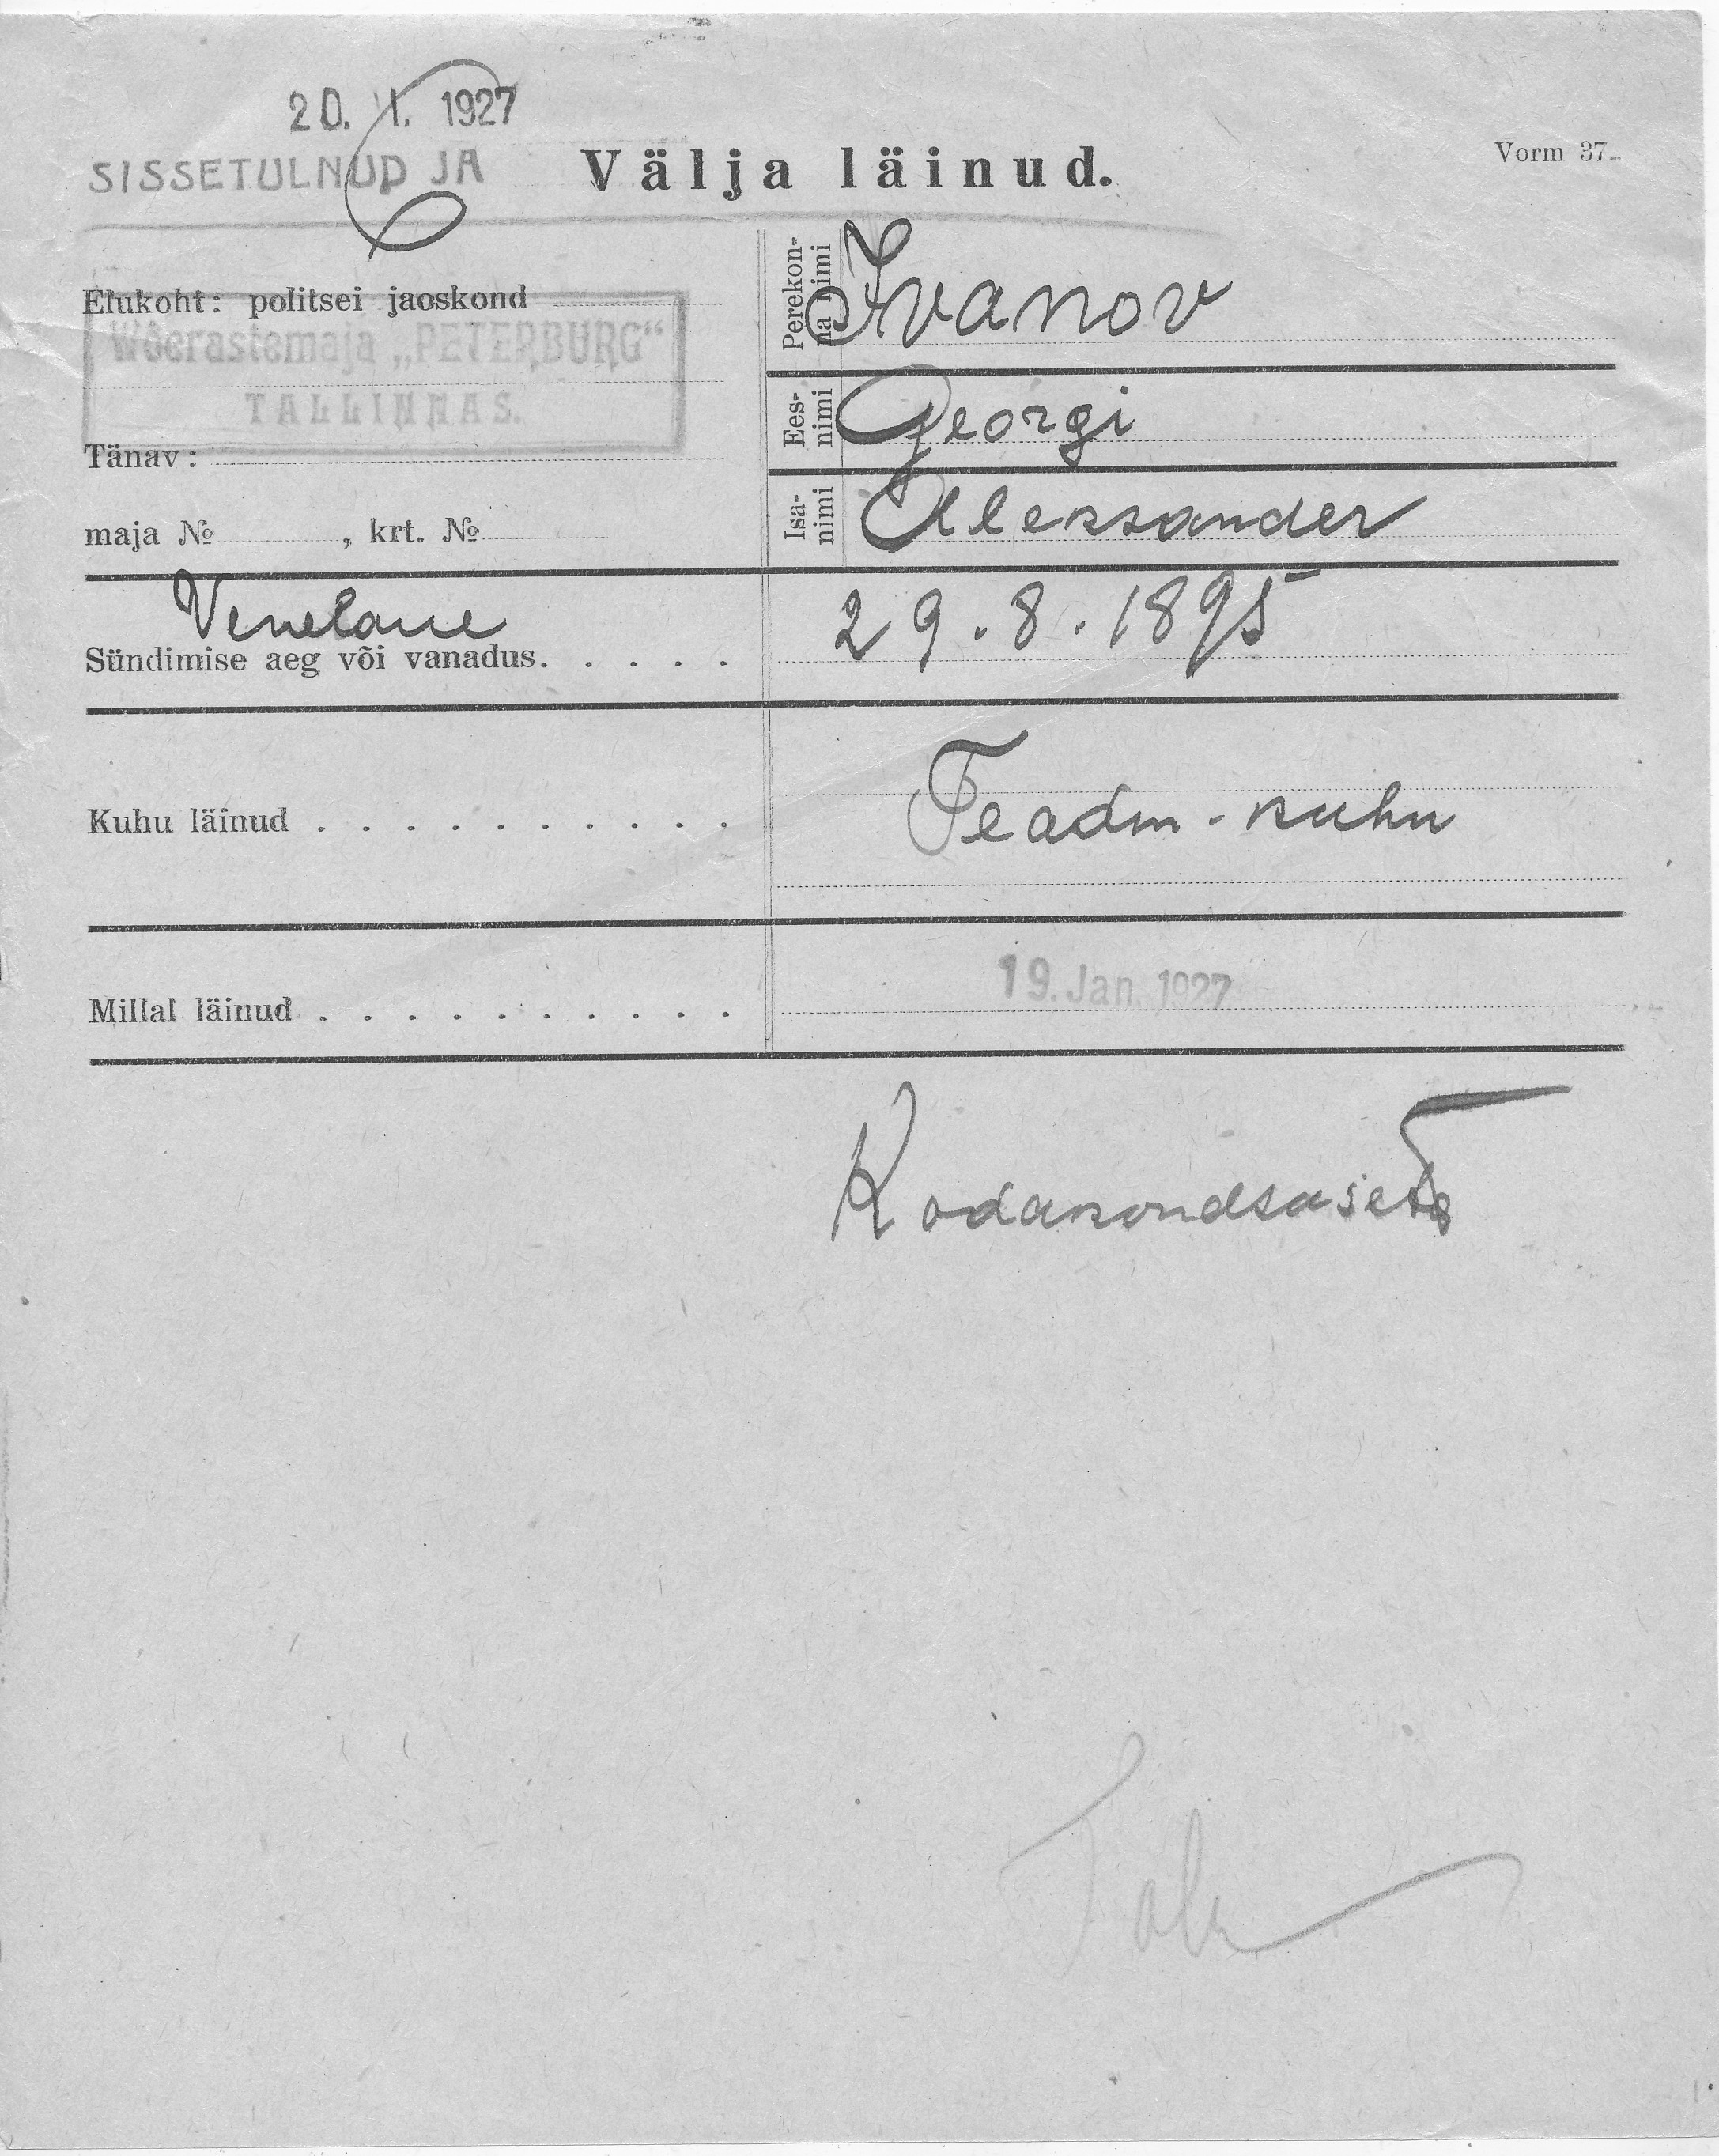 20. 1. 1927
SISSETULNUD JA Välja läinud. Vorm 37.
Elukoht: politsei jaoskond
Wõerastemaja „PETERBURG“
TALLINNAS.
Tänav:
maja № , krt. №
Perekon-
na nimi Ivanov
Ees-
nimi Georgi
Isa-
nimi Aleksander
Venelane
Sündimise aeg või vanadus. . . . . 29.8.1895
Kuhu läinud . . . . . . . . . . Teadm. kuhu
Millal läinud . . . . . . . . . . 19. Jan. 1927
Kodakondsuseta